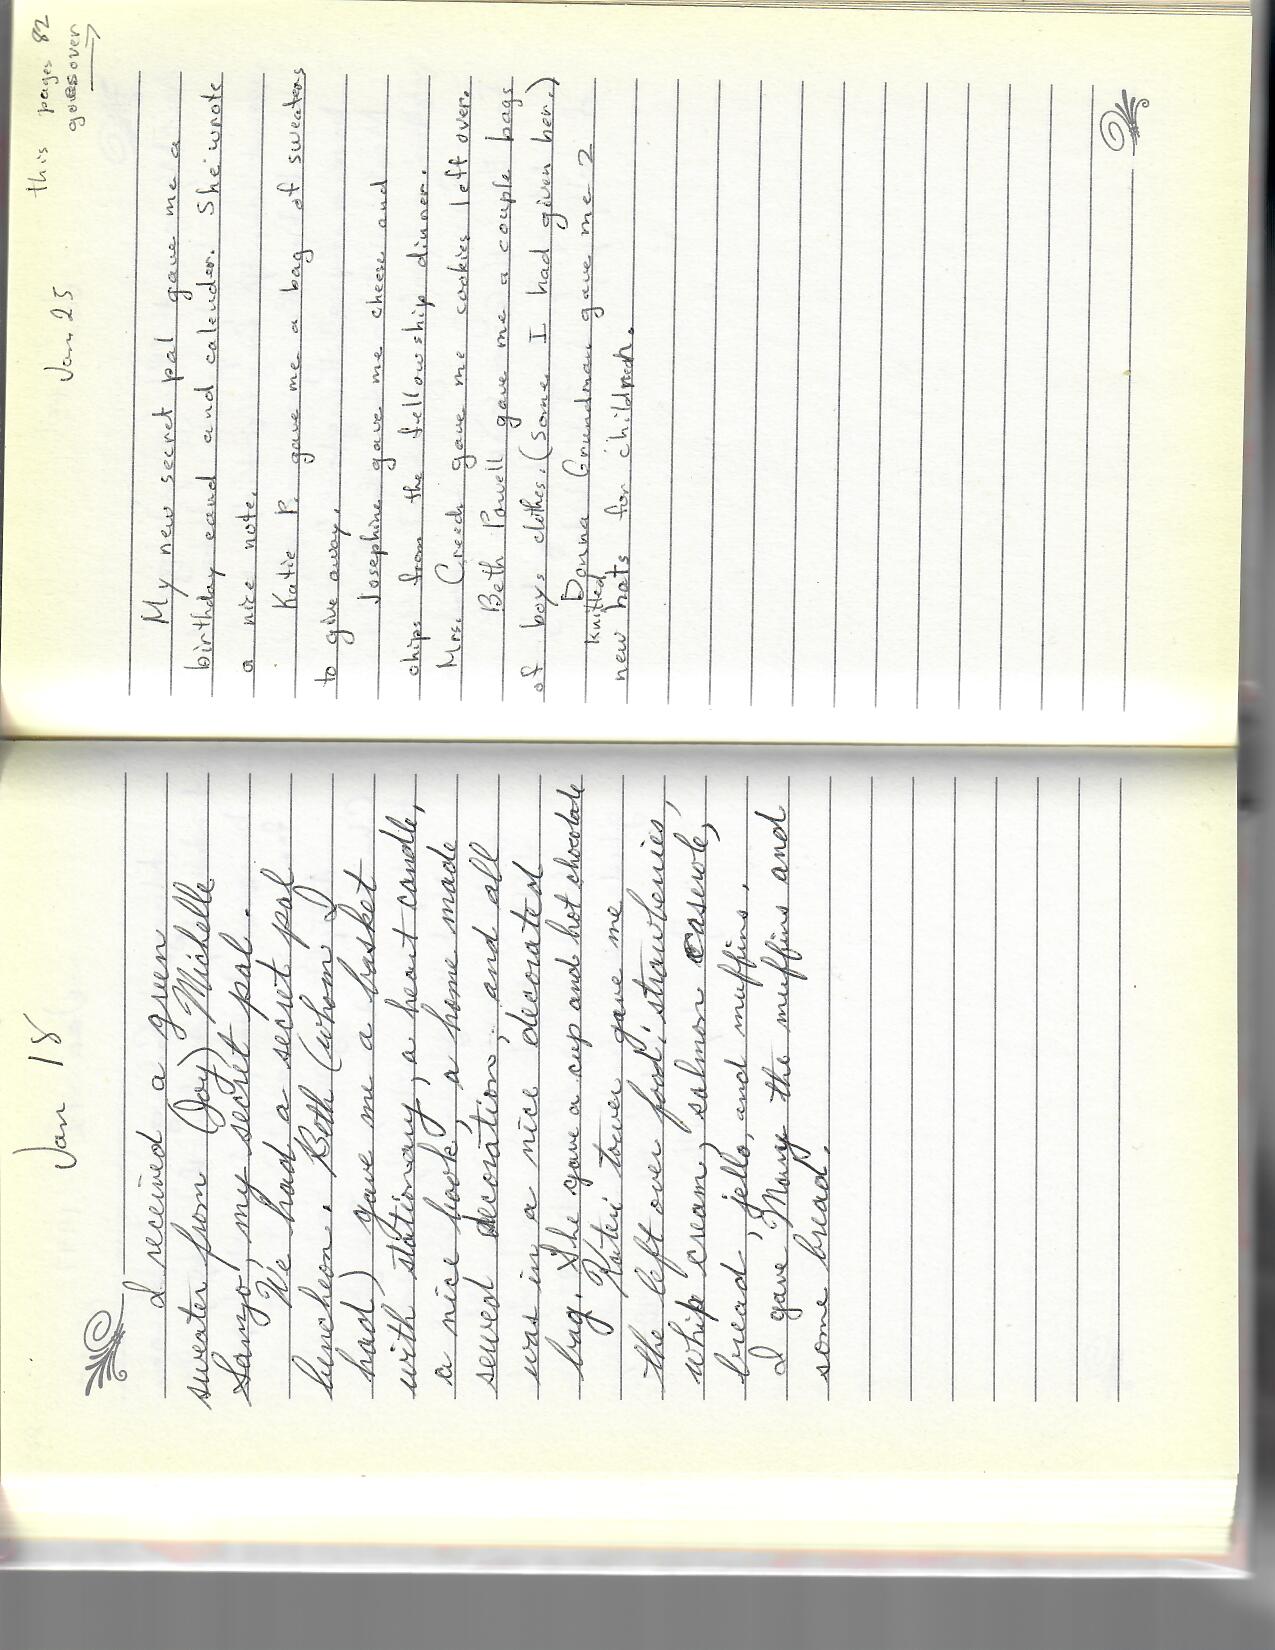 Jan 18
I received a green
sweater from (Joy) Michelle
Sanzo, my secret pal.
We had a secret pal
luncheon. Beth (whom I
had) gave me a basket
with stationary, a heart candle,
a nice book, a home made
sewed decoration, and all
was in a nice decorated
bag. She gave a cup and hot chocolate
Kateri tower gave me
the left over food; strawberries,
whip cream, salmon caserole,
bread, jello, and muffins.
I gave Mary the muffins and
some bread.
Jan 25
this pages 82
goes over
My new secret pal gave me a
birthday card and calender. She wrote
a nice note.
Katie P. gave me a bag of sweaters
to give away.
Josephine gave me cheese and
chips from the fellowship dinner.
Mrs. Creech gave me cookies left over.
Beth Powell gave me a couple bags
of boys clothes. (Some I had given her.)
Donna Grundman gave me 2
knitted
new hats for children.